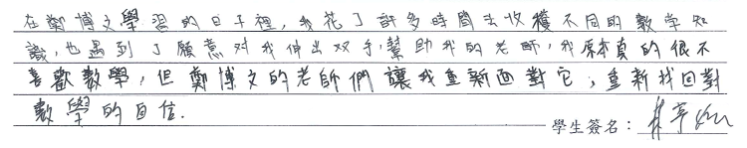 在鄭博文學習的日子裡，我花了許多時間去收穫不同的數学知
識，也遇到了願意對我伸出双手，幫助我的老師，我原本真的很不
喜歡數學，但鄭博文的老師們讓我重新面對它，重新找回對
數學的自信.
學生簽名：